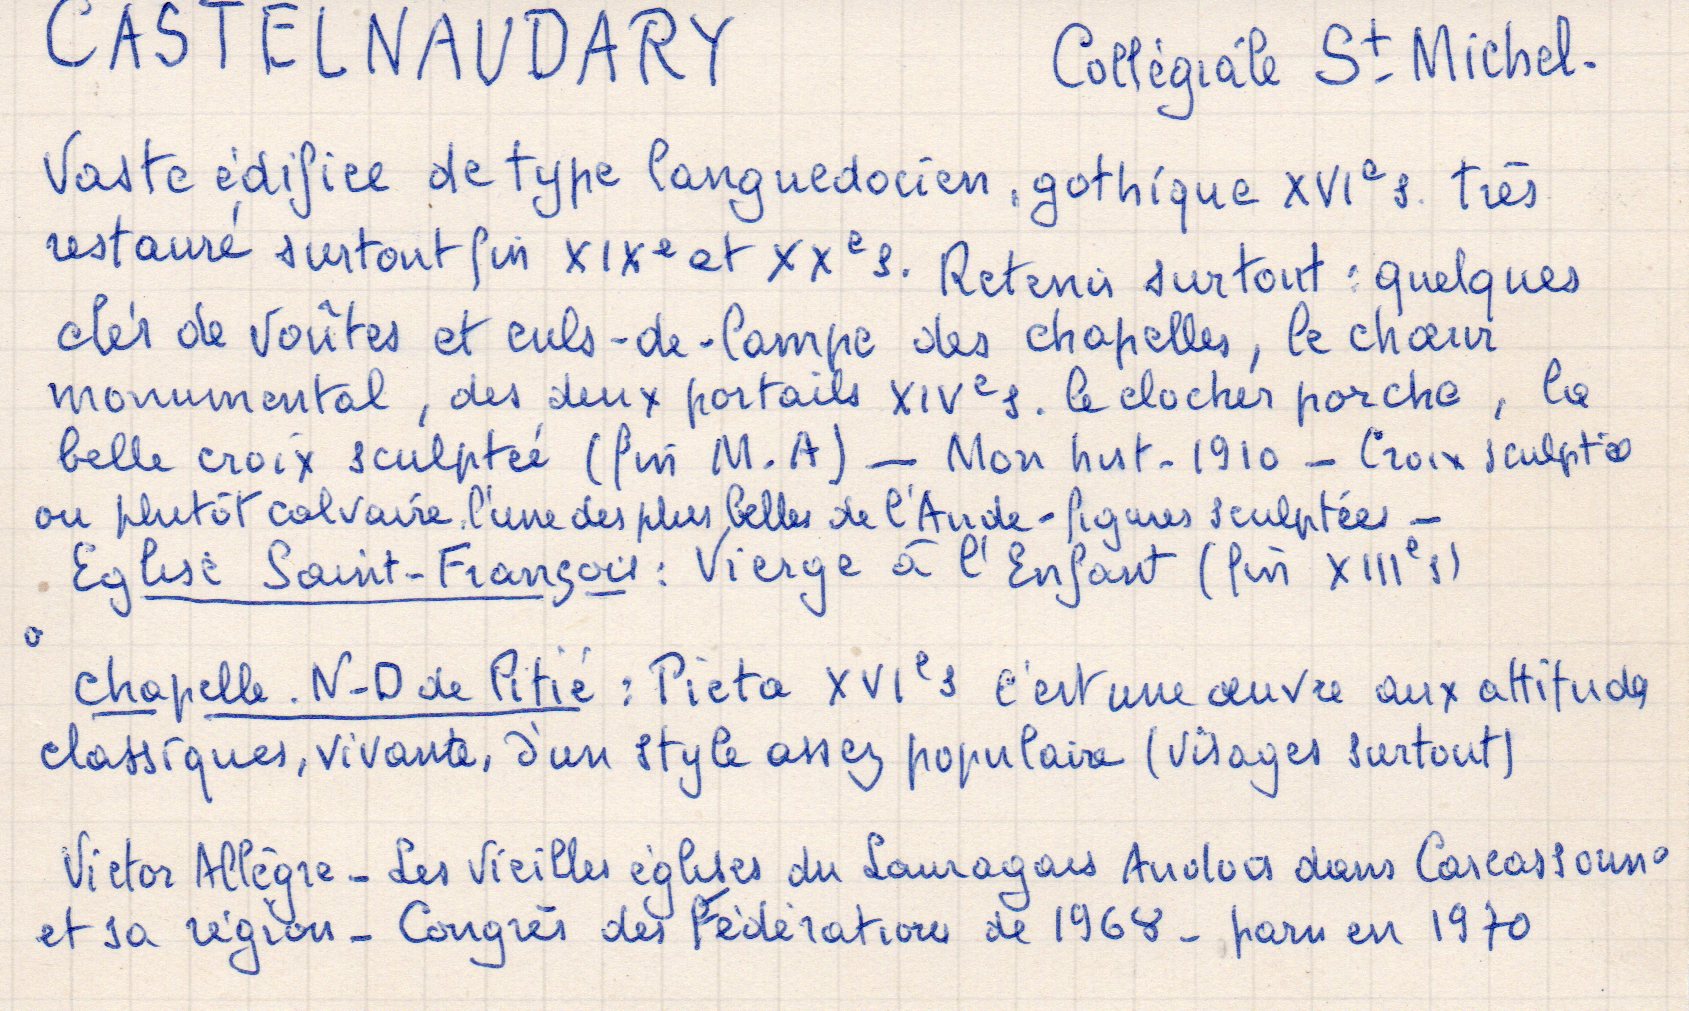 CASTELNAUDARY Collégiale St Michel.
Vaste édifice de type languedocien, gothique XVIe s. très
restauré surtout fin XIXe et XXe s. Retenir surtout : quelques
clés de voûtes et culs-de-lampe des chapelles, le chœur
monumental, des deux portails XIVe s. le clocher porche, la
belle croix sculptée (fin M.A) — Mon hist - 1910 - Croix sculptée
ou plutôt calvaire. l'une des plus belles de l'Aude - figures sculptées -
Eglise Saint-François : Vierge à l'Enfant (fin XIIIe s)
chapelle. N-D de Pitié : Pieta XVIe s c'est une œuvre aux attitudes
classiques, vivante, d'un style assez populaire (visages surtout)
Victor Allègre - Les vieilles églises du Lauragais Audois dans Carcassonne
et sa région - Congrès des Fédérations de 1968 - paru en 1970